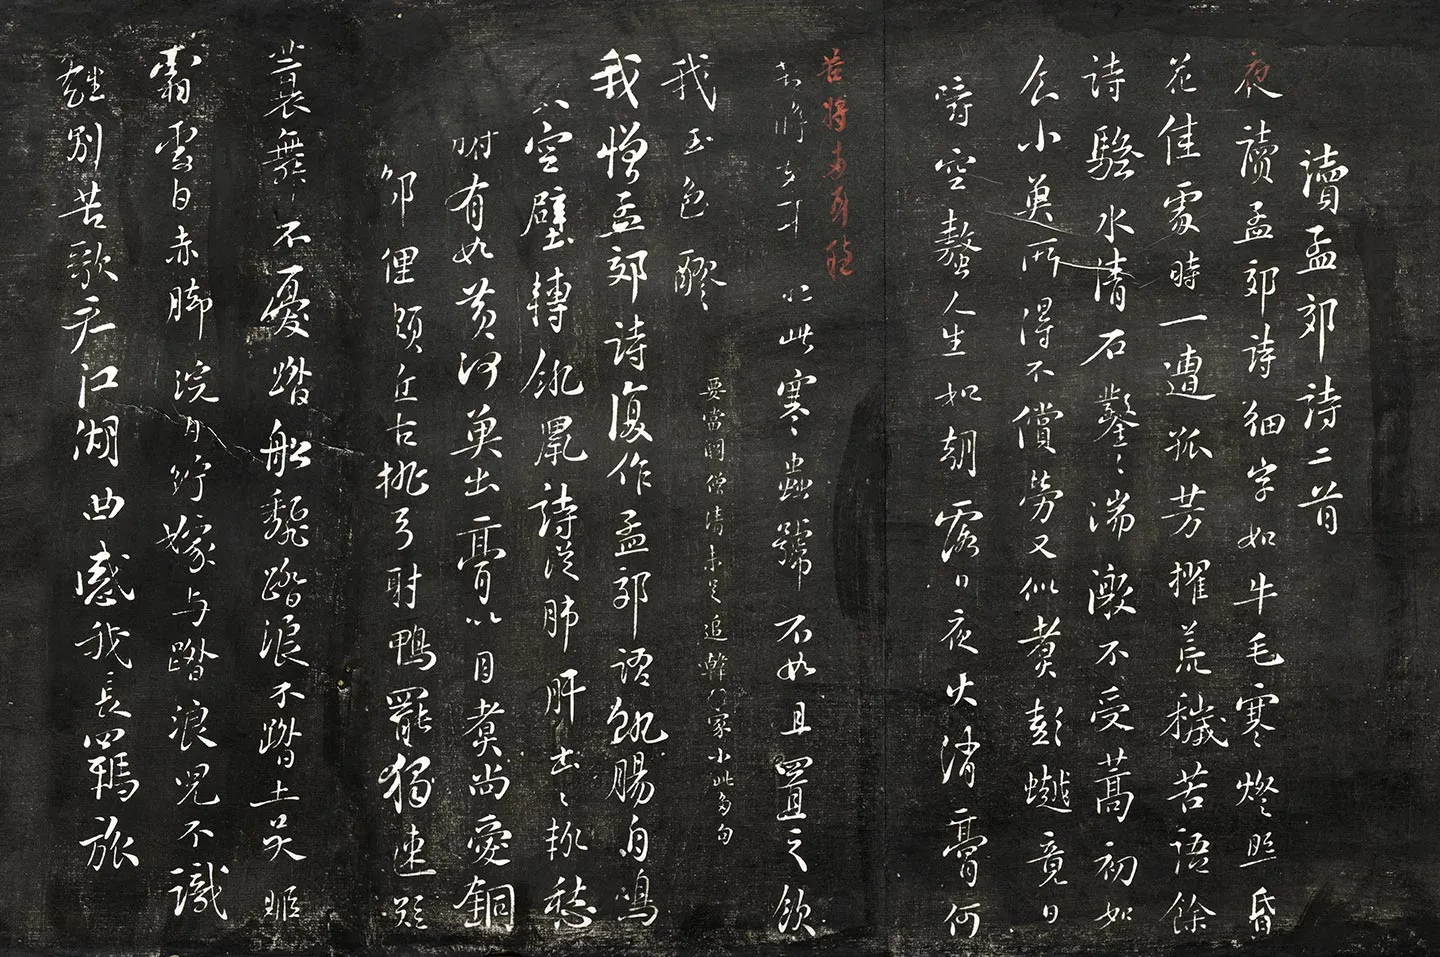 讀孟郊詩二首
夜讀孟郊詩細字如牛毛寒燈照昏
花佳處時一遭孤芳擢荒穢苦語餘
詩騷水清石鑿〻湍激不受篙初如
食小魚所得不償勞又似煮彭竟日
嚼空螯人生如朝露日夜火消膏何
苦將兩耳聽
苦將兩耳此寒蟲號不如且置之飲
我玉色醪
要當鬪僧清未足追韓豪
我憎孟郊詩復作孟郊語飢腸自鳴
空壁轉飢鼠詩從肺肝出〻輒愁
有如黃河魚出膏以自煮尚愛銅
俚頗近古桃弓射鴨罷獨速短
蓑舞不憂踏船翻踏浪不踏土吳姬
霜雪白赤脚浣白紵嫁与踏浪兒不識
離別苦歌君江湖曲感我長羈旅